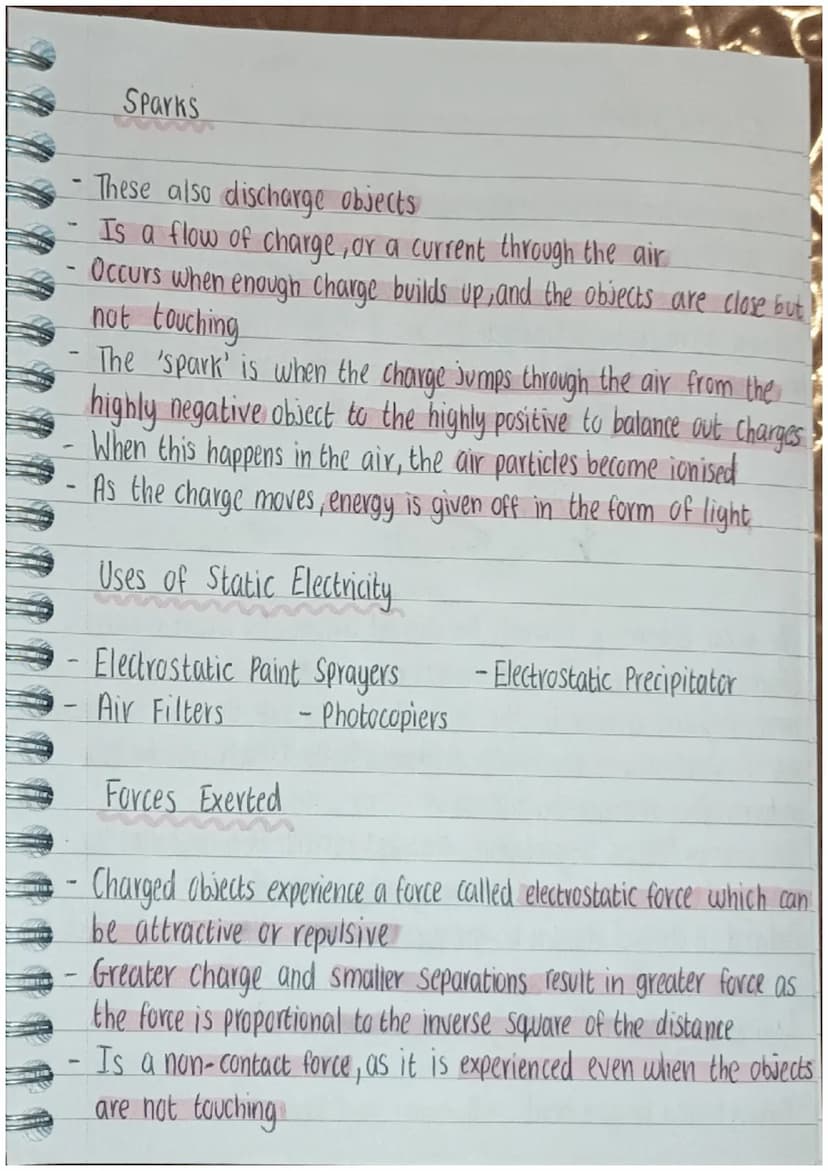 Sparks
- These also discharge objects
- Is a flow of charge, or a current through the air
- Occurs when enough charge builds up, and the objects are close but
not touching
- The 'spark' is when the charge jumps through the air from the
highly negative object to the highly positive to balance out charges
- When this happens in the air, the air particles become ionised
- As the charge moves, energy is given off in the form of light
Uses of Static Electricity
- Electrostatic Paint Sprayers - Electrostatic Precipitator
- Air Filters - Photocopiers
Forces Exerted
- Charged objects experience a force called electrostatic force which can
be attractive or repulsive
- Greater charge and smaller separations result in greater force as
the force is proportional to the inverse square of the distance
- Is a non-contact force, as it is experienced even when the objects
are not touching